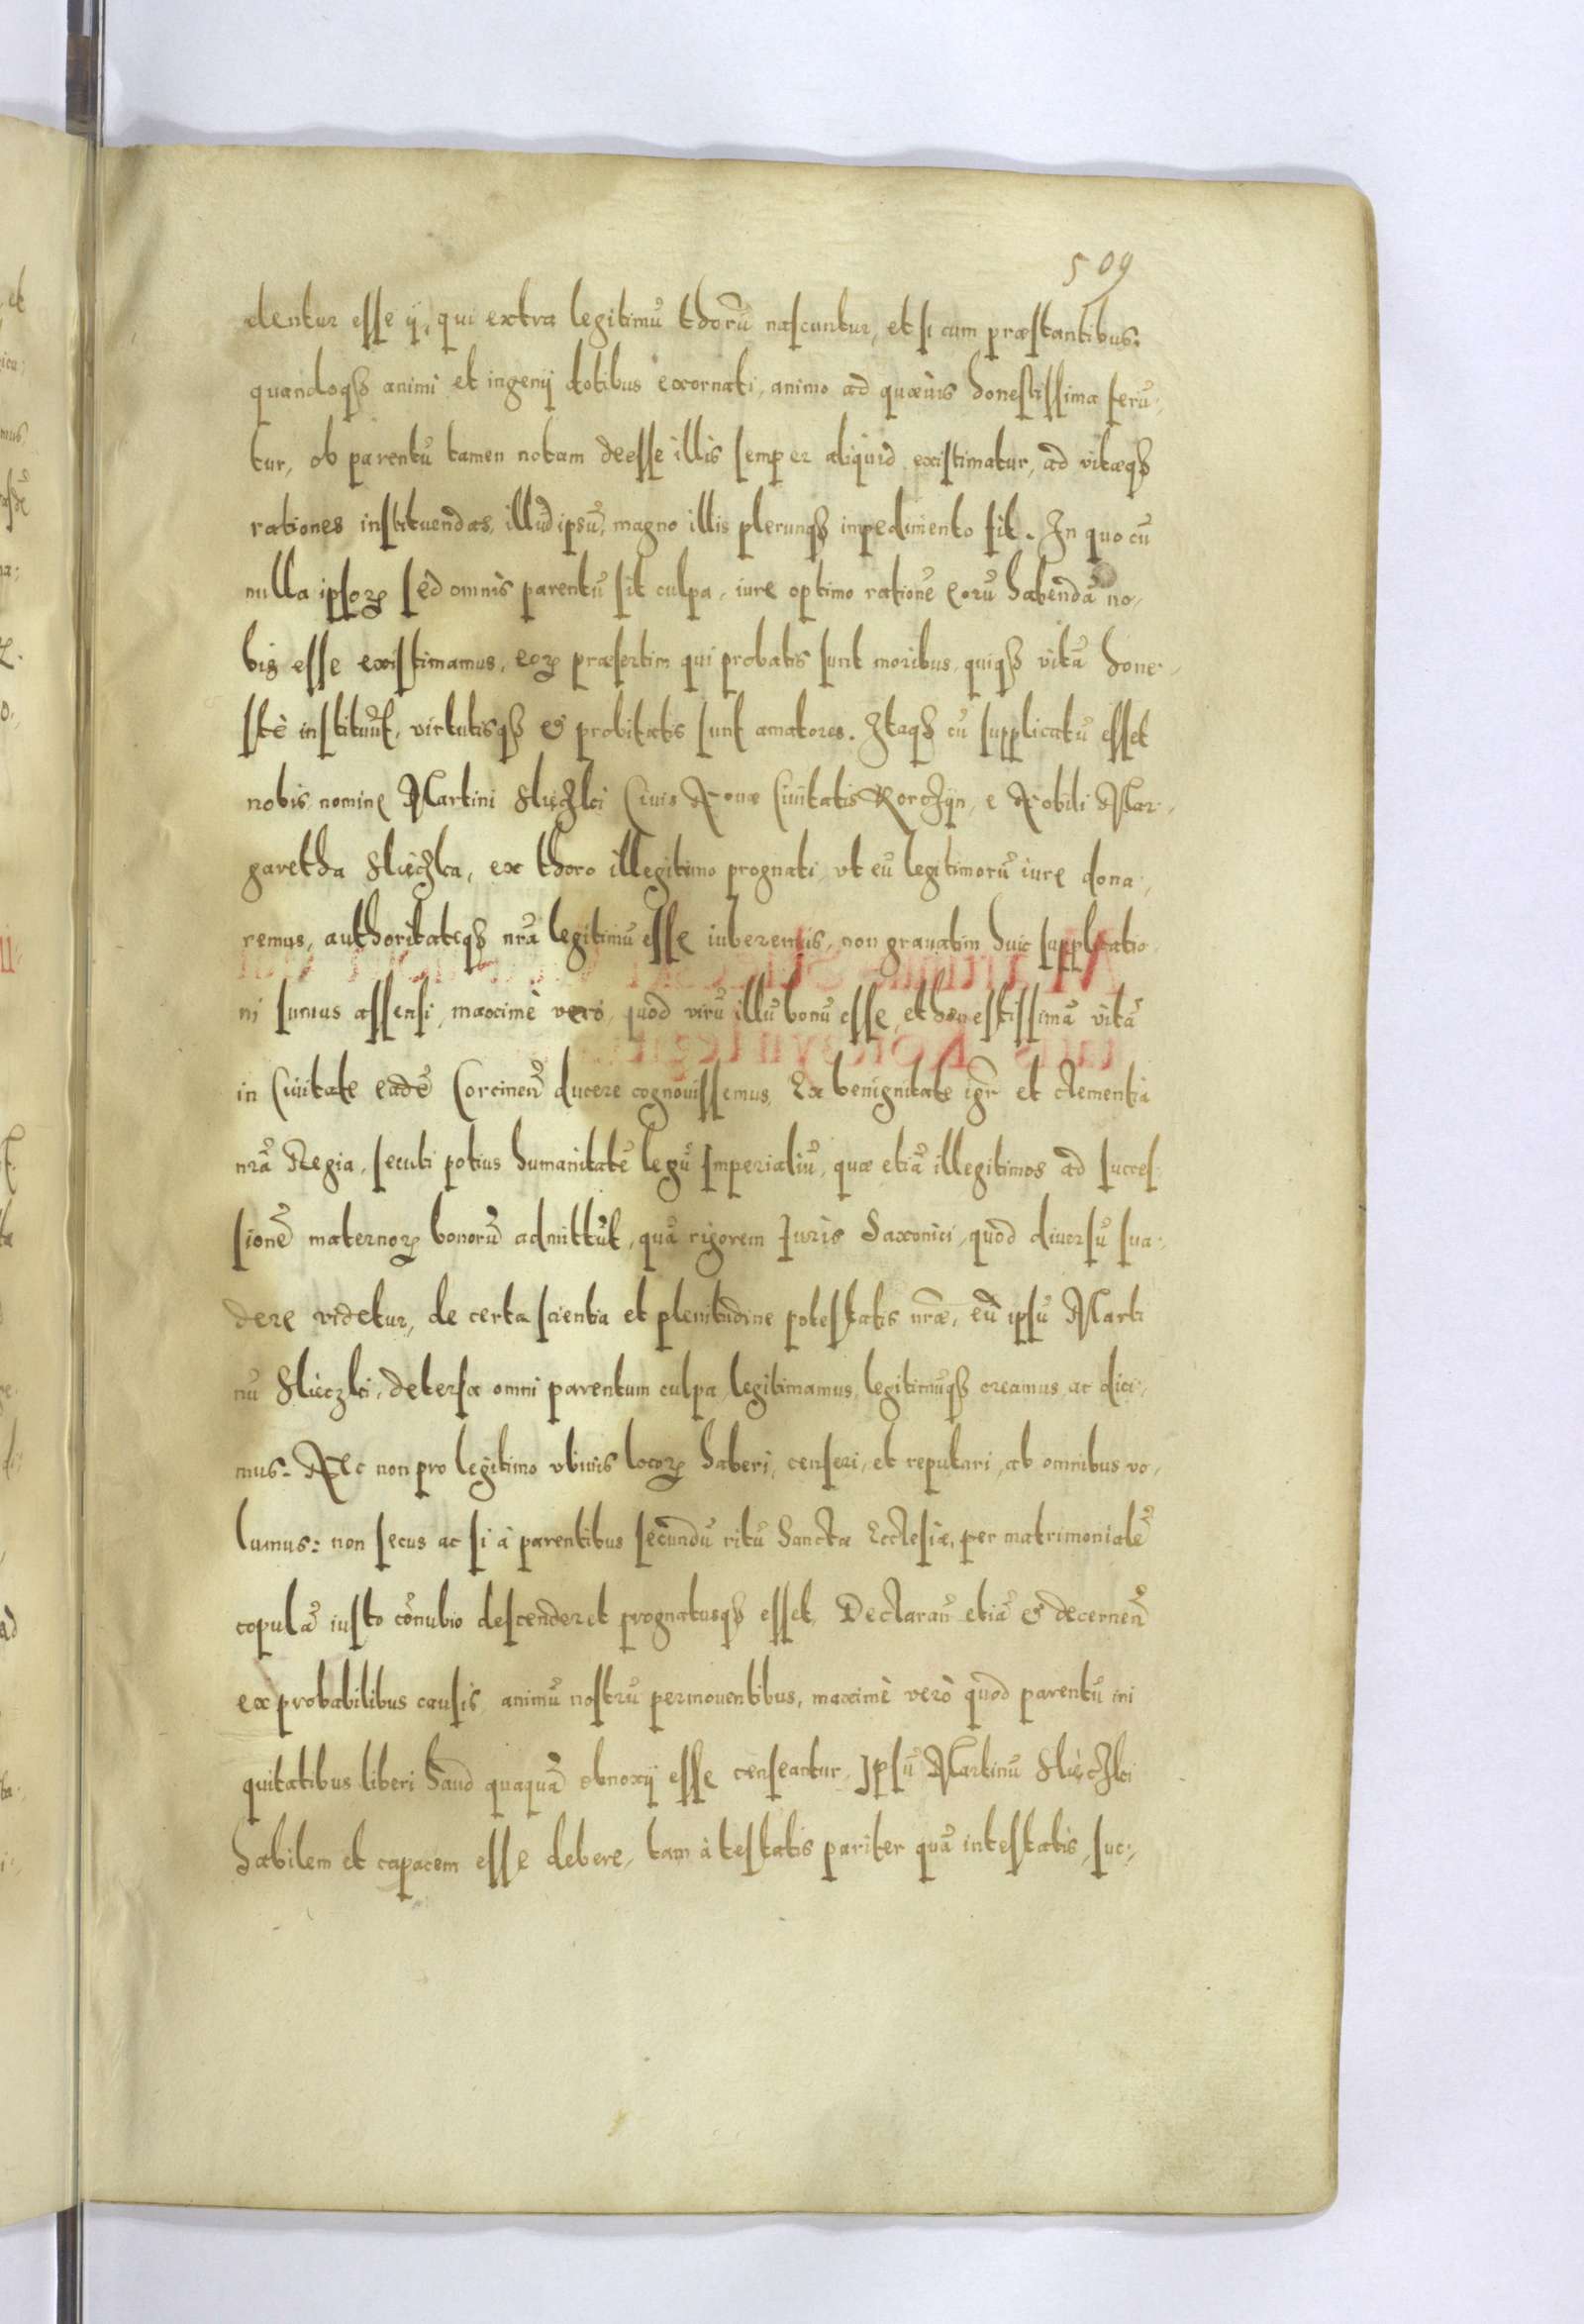 509
dentur esse ij, qui extra legitimũ thorũ nascuntur, et si cum præstantibus
quandoqꝫ animi et ingenij dotibus exornati, animo ad quævis honestissima ferũ,
tur, ob parentũ tamen notam deesse illis semper aliquid existimatur, ad vitæqꝫ
rationes instituendas, illud ipsũ, magno illis plerunqꝫ impedimento fit. In quo cũ
nulla ipsoꝝ sed omnis parentũ sit culpa, iure optimo rationẽ eorũ habendã no,
bis esse existimamus, eoꝝ præsertim qui probatis sunt moribus, quiqꝫ vitã hone,
stè instituũt, virtutisqꝫ & probitatis sunt amatores. Itaqꝫ cũ supplicatũ esset
nobis nomine Martini Slięczki Ciuis Nouæ Ciuitatis Korczijn, e Nobili Mar,
garetha Slięczka, ex thoro illegitimo prognati, vt eũ legitimorũ iure dona,
remus, authoritateqꝫ nr̃a legitimũ esse iuberemus, non grauatim huic supplicatio
ni sumus assensi, maximè verò, quod virũ illũ bonũ esse, et honestissimã vitã
in Ciuitate eadẽ Corcineñ ducere cognouissemus. Ex benignitate igr̃ et clementia
nr̃a Regia, secuti potius humanitatẽ legũ Imperialiũ, quæ etiã illegitimos ad succes,
sionẽ maternoꝝ bonorũ admittũt, quã rigorem Juris Saxonici, quod diuersũ sua,
dere videtur, de certa scientia et plenitudine potestatis nr̃æ, eũ ipsũ Marti
nũ Slięczki, detersa omni parentum culpa, legitimamus, legitimũqꝫ creamus, ac dici,
mus. Nec non pro legitimo vbiuis locoꝝ haberi, censeri, et reputari, ab omnibus vo,
lumus: non secus ac si à parentibus secundũ ritũ Sanctæ Ecclesiæ, per matrimonialẽ
copulã iusto cõnubio descenderet prognatusqꝫ esset. Declarañ etiã & decerneñ
ex probabilibus causis animũ nostrũ permouentibus, maximè verò quod parentũ ini
quitatibus liberi haud quaquã obnoxij esse censeantur, Ipsũ Martinũ Slięczki
habilem et capacem esse debere, tam à testatis pariter quã intestatis, suc,